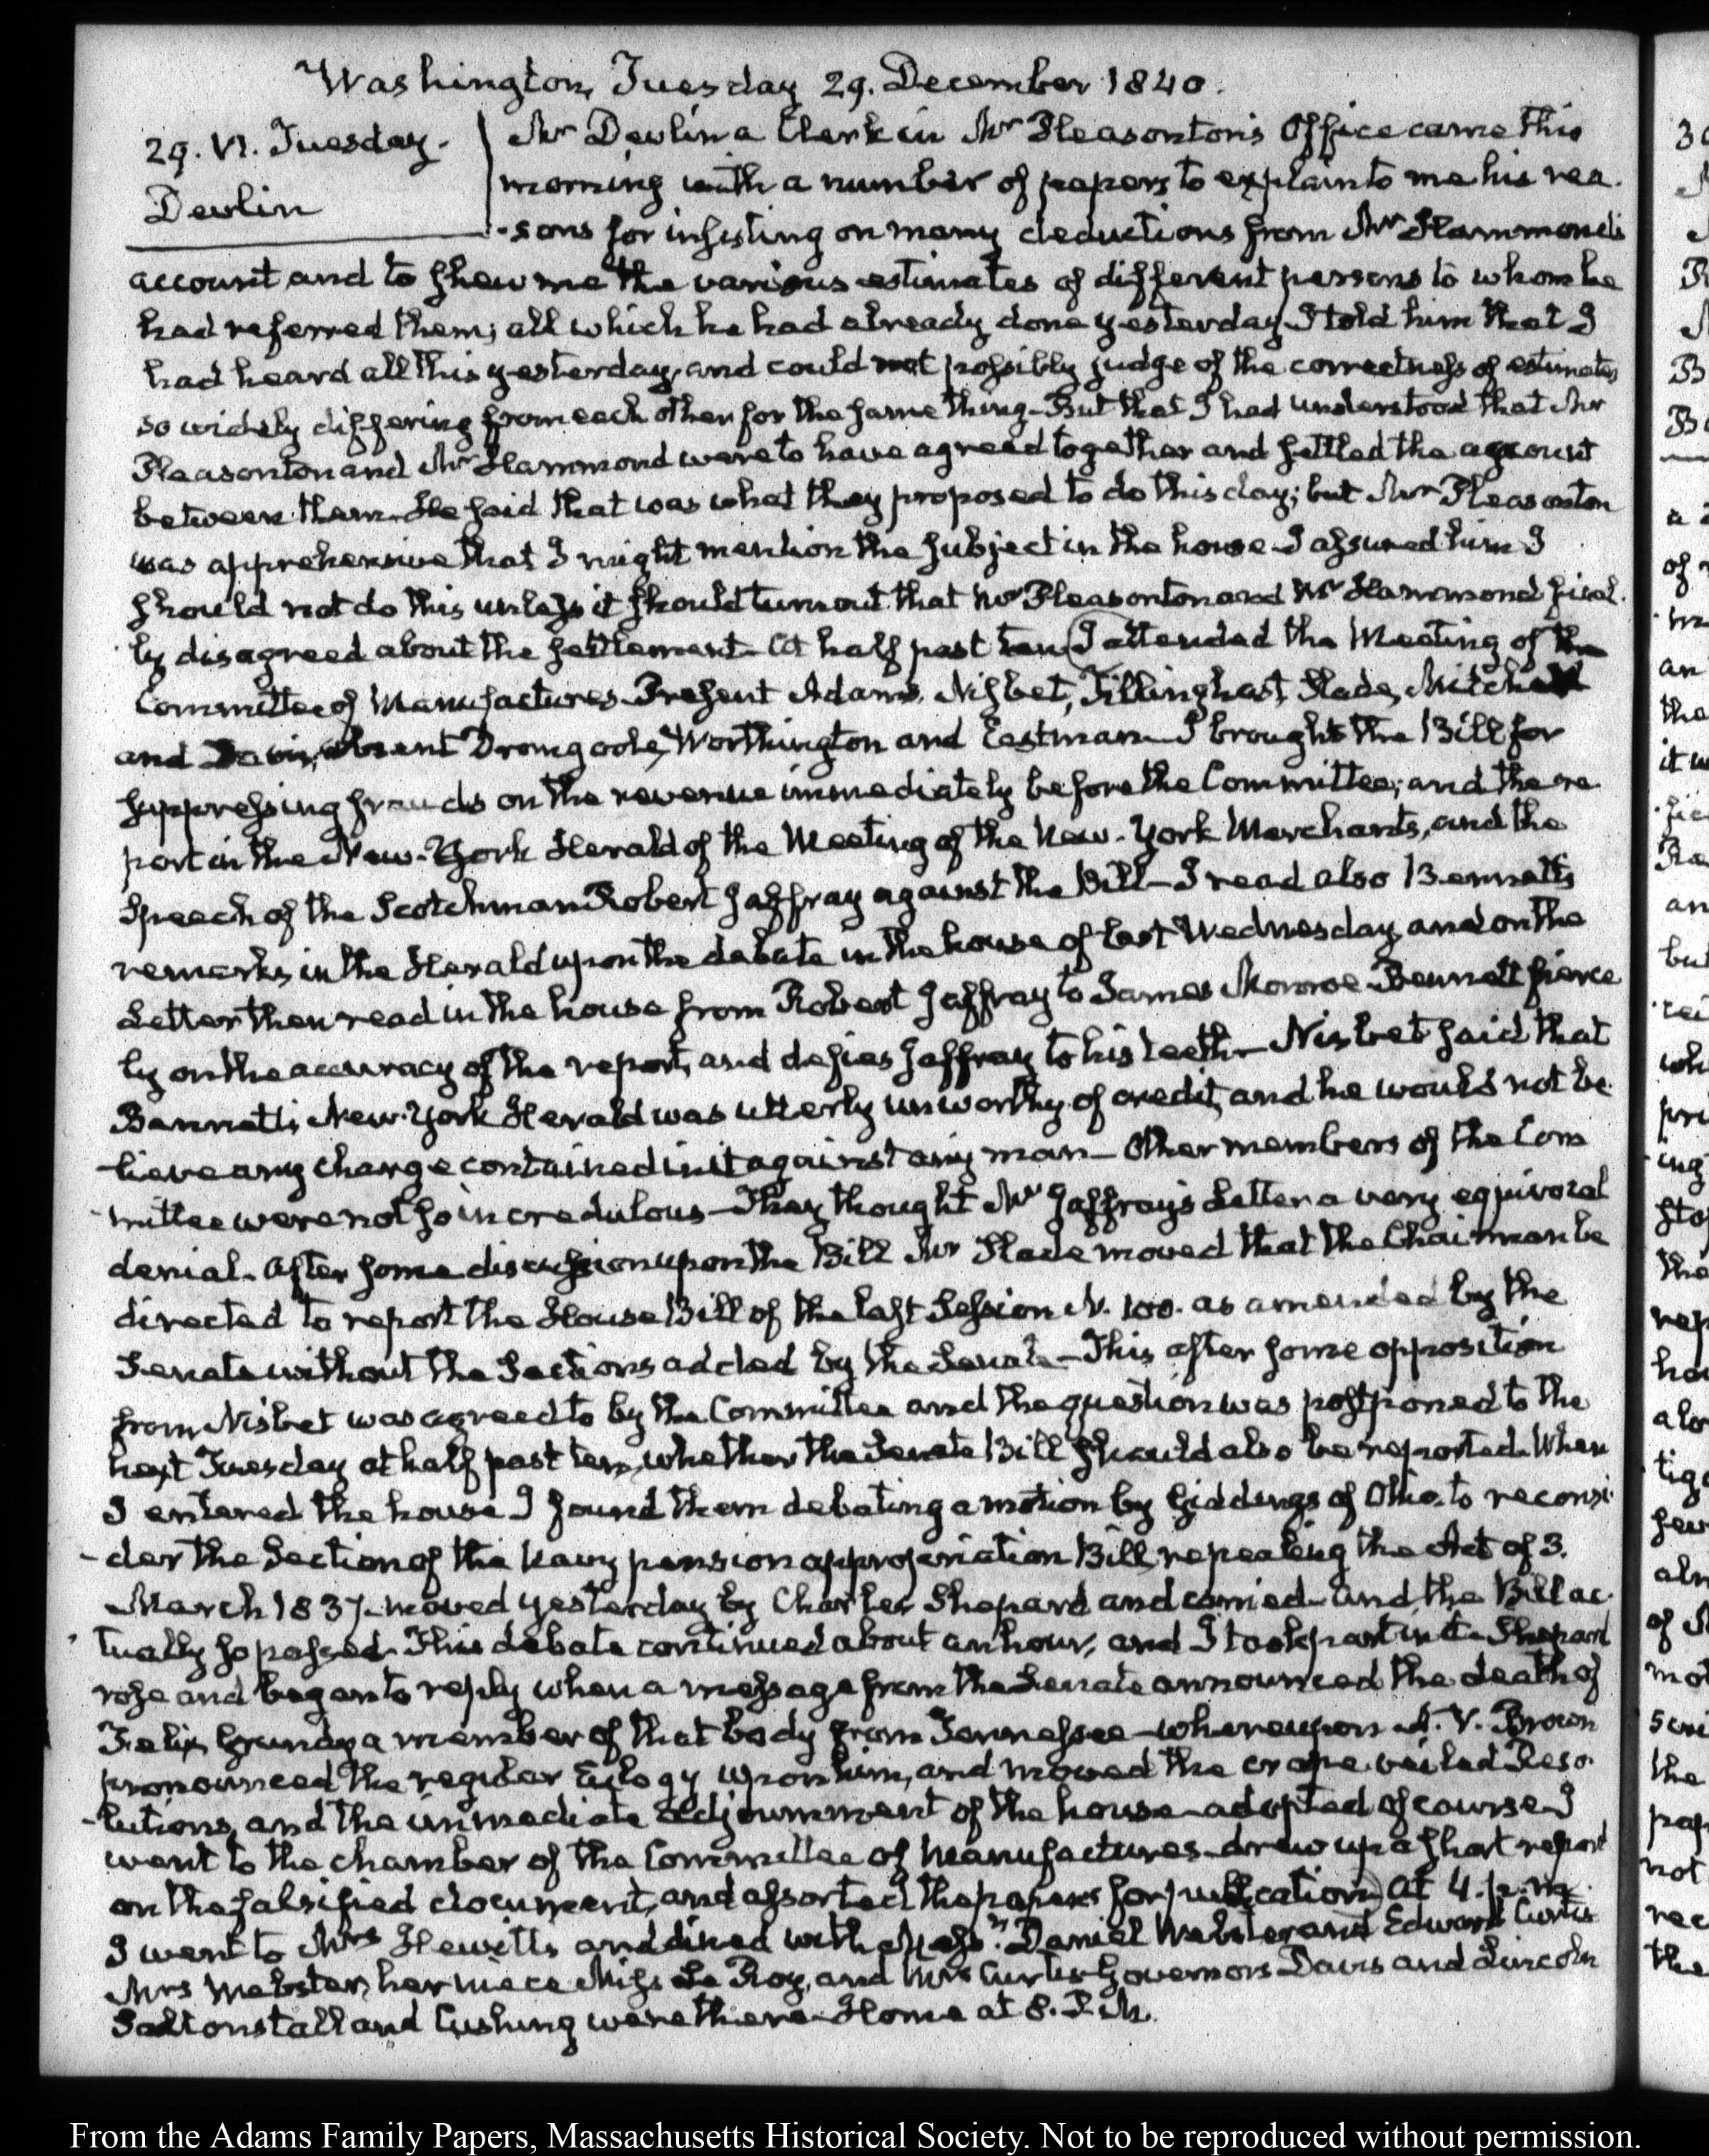 Washington, Tuesday 29. December 1840.
29. VI. Tuesday.
Devlin
Mr Devlin a Clerk in Mr Pleasonton's Office came this
morning with a number of papers to explain to me his rea-
-sons for insisting on many deductions from Mr Hammond's
account and to shew me the various estimates of different persons to whom he
had referred them; all which he had already done yesterday. I told him that I
had heard all this yesterday, and could not possibly judge of the correctness of estimates
so widely differing from each other for the same thing. But that I had understood that Mr
Pleasonton and Mr Hammond were to have agreed together and settled the account
between them. He said that was what they proposed to do this day; but Mr Pleasonton
was apprehensive that I might mention the subject in the house. I assured him I
should not do this unless it should turn out that Mr Pleasonton and Mr Hammond final-
ly disagreed about the settlement. At half past ten (I attended the Meeting of the
Committee of Manufactures. Present Adams, Nisbet, Tillinghast, Slade, Mitchell
and Davis, absent Dromgoole, Worthington and Eastman. I brought the Bill for
suppressing frauds on the revenue immediately before the Committee; and the re-
port in the New-York Herald of the Meeting of the New-York Merchants, and the
Speech of the Scotchman Robert Jaffray against the Bill— I read also Bennett's
remarks in the Herald upon the debate in the house of last Wednesday, and on the
Letter then read in the house from Robert Jaffray to James Monroe. Bennett fierce
ly on the accuracy of the report, and defies Jaffray to his teeth— Nisbet said that
Bennett's New-York Herald was utterly unworthy of credit, and he would not be-
-lieve any charge contained in it against any man— Other members of the Com
-mittee were not so incredulous— They thought Mr Jaffray's Letter a very equivocal
denial. After some discussion upon the Bill Mr Slade moved that the Chairman be
directed to report the House Bill of the last Session N. 100. as amended by the
Senate without the Sections added by the Senate— This after some opposition
from Nisbet was agreed to by the Committee and the question was postponed to the
next Tuesday at half past ten, whether the Senate Bill should also be reported. When
I entered the house I found them debating a motion by Giddings of Ohio to reconsi-
-der the Section of the Navy pension appropriation Bill, repealing the Act of 3.
March 1837. moved yesterday by Charles Shepard and carried. and the Bill ac-
tually so passed. This debate continued about an hour, and I took part in it. Shepard
rose and began to reply when a message from the Senate announced the death of
Felix Grundy a member of that body from Tennessee— whereupon A. V. Brown
pronounced the regular Eulogy upon him, and moved the crape veiled Reso-
-lutions, and the immediate adjournment of the house— adopted of course. I
went to the chamber of the Committee of Manufactures— drew up a short report
on the falsified document, and assorted the papers for publication) At 4. p.m.
I went to Mrs Hewitt's and dined with Messrs Daniel Webster and Edward Curtis
Mrs Webster, her niece Miss Le Roy, and Mrs Curtis. Governors Davis and Lincoln
Saltonstall and Cushing were there. Home at 8. P.M.
From the Adams Family Papers, Massachusetts Historical Society. Not to be reproduced without permission.